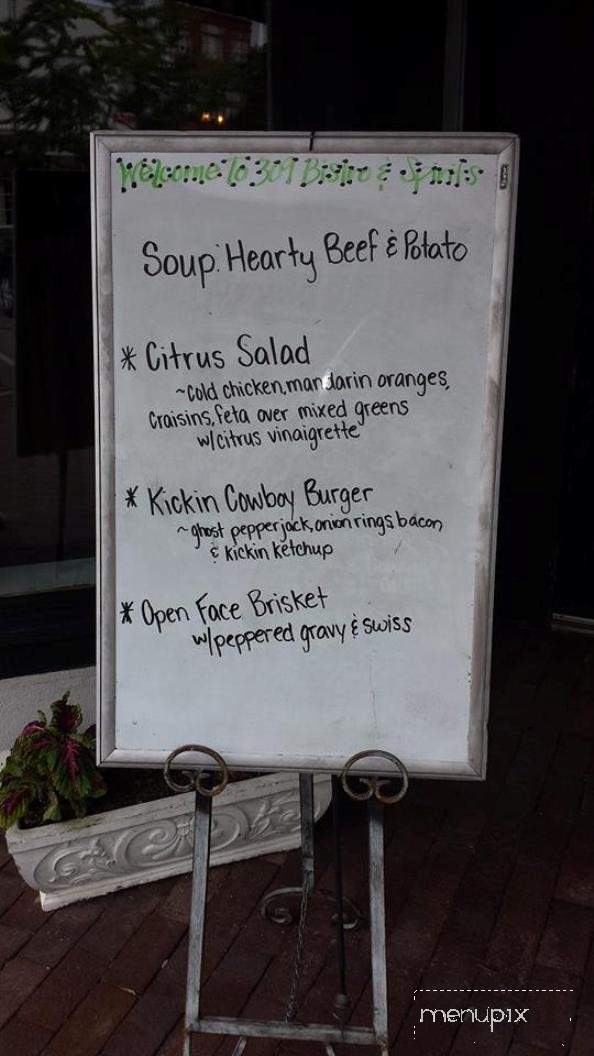 Welcome to 309 Bistro & Spirits
Soup: Hearty Beef & Potato
* Citrus Salad
~cold chicken, mandarin oranges,
craisins, feta over mixed greens
w/citrus vinaigrette
* Kickin Cowboy Burger
~ghost pepperjack, onion rings, bacon,
& kickin ketchup
* Open Face Brisket
w/peppered gravy & swiss
menupix